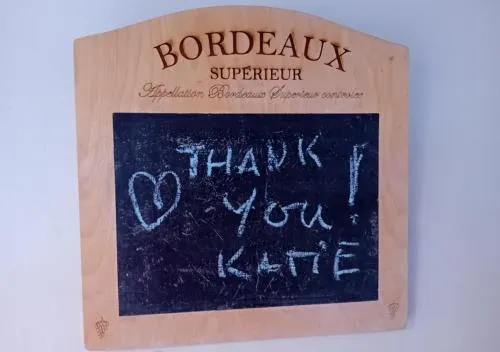 BORDEAUX
SUPÉRIEUR
Appellation Bordeaux Superieur controlee
THANK
YOU!
KATIE